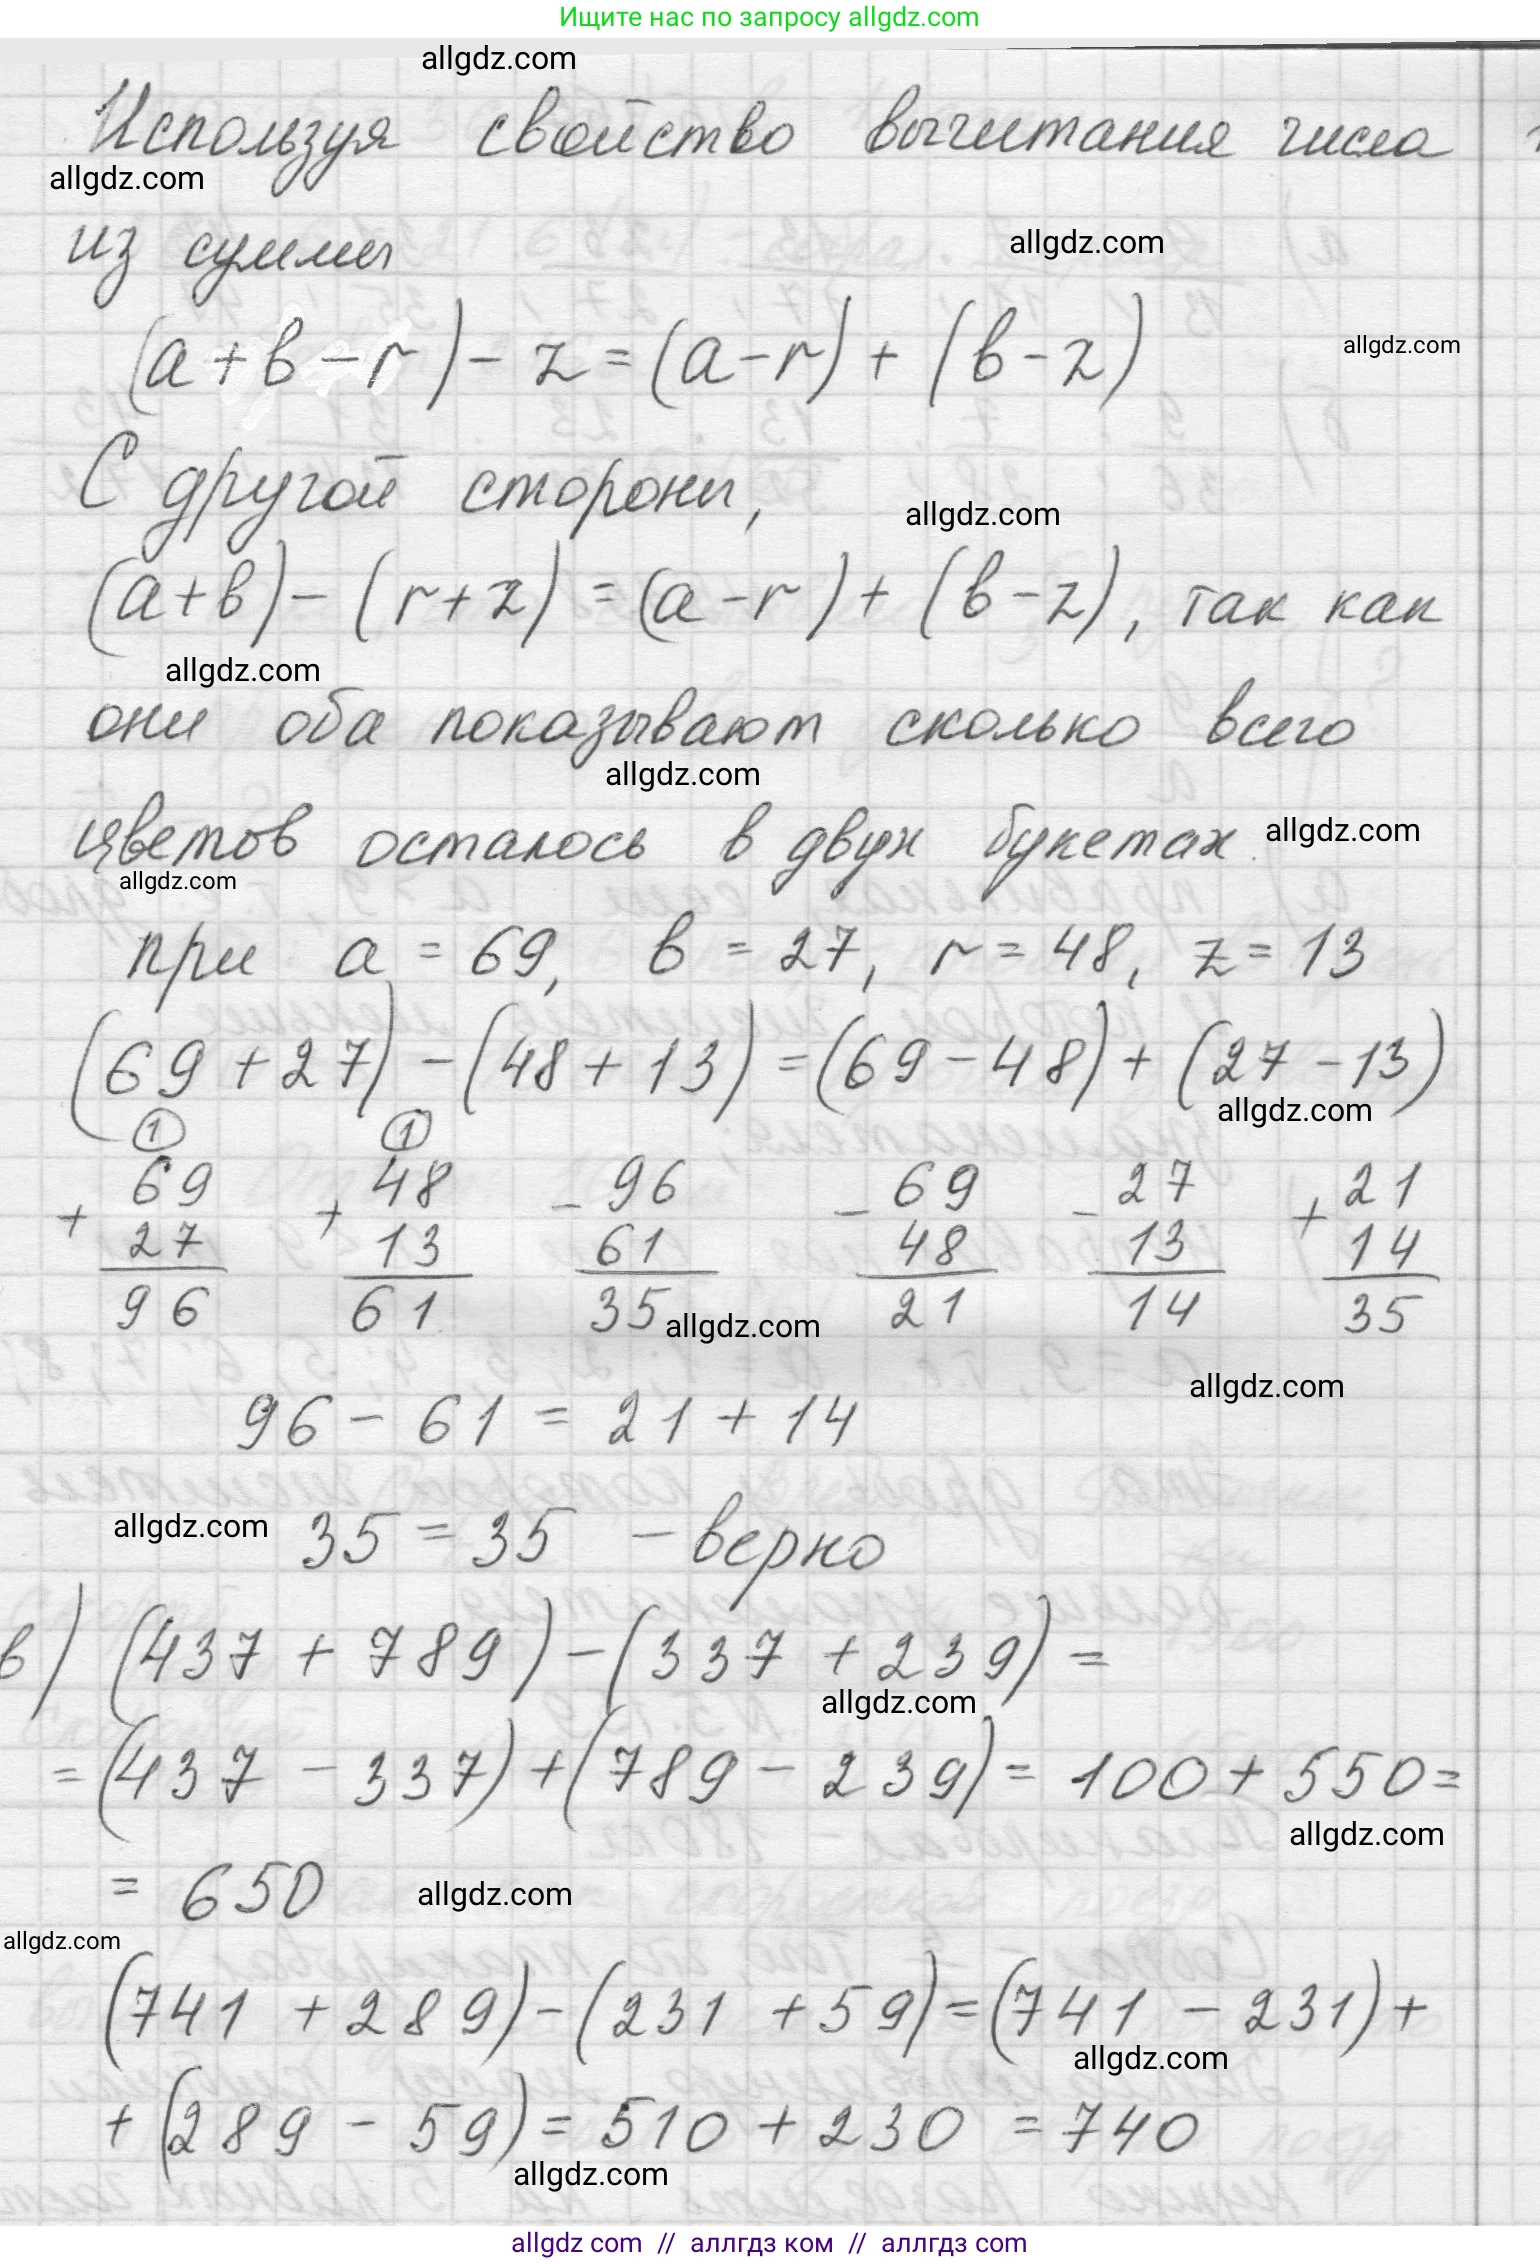 Ищите нас по запросу allgdz.com
allgdz.com
Используя свойство вычитания числа
allgdz.com
из суммы
allgdz.com
(a+b-r)-z=(a-r)+(b-z)
allgdz.com
С другой стороны,
allgdz.com
(a+b)-(r+z)=(a-r)+(b-z), так как
allgdz.com
они оба показывают сколько всего
allgdz.com
цветов осталось в двух букетах.
allgdz.com
allgdz.com
при a = 69, b = 27, r = 48, z = 13
(69+27)-(48+13)=(69-48)+(27-13)
allgdz.com
1 1
69 48 96 69 27 21
+ + - - - +
27 13 61 48 13 14
96 61 35 21 14 35
allgdz.com
allgdz.com
96 - 61 = 21 + 14
allgdz.com
35 = 35 - верно
в) (437 + 789)-(337 + 239)=
allgdz.com
=(437 - 337)+(789 - 239)= 100 + 550=
allgdz.com
= 650
allgdz.com
allgdz.com
(741 + 289)-(231 + 59)=(741 - 231)+
allgdz.com
+ (289 - 59)= 510 + 230 = 740
allgdz.com
allgdz com // аллгдз ком // аллгдз com